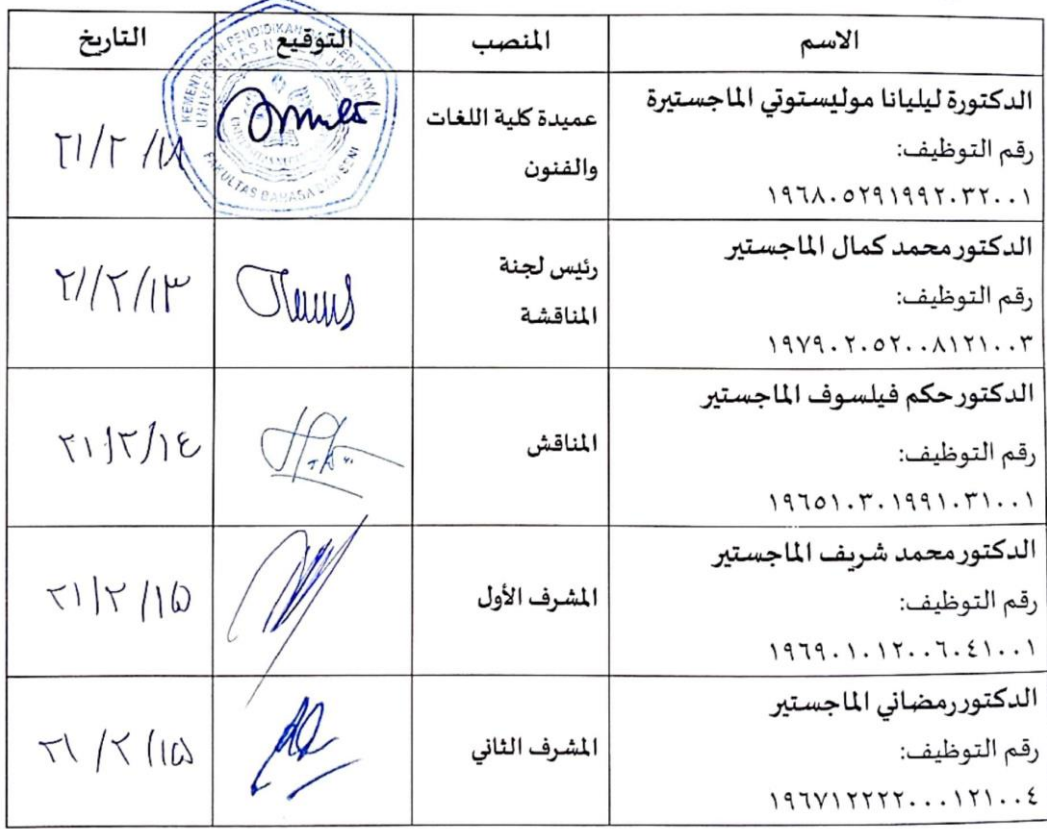 الاسم المنصب التوقيع التاريخ
الدكتورة ليليانا موليستوتي الماجستيرة
رقم التوظيف:
١٩٦٨٠٥٢٩١٩٩٢٠٣٢٠٠١
عميدة كلية اللغات
والفنون
UNIVERSITAS
FAKULTAS BAHASA DAN SENI
٢١/٢/١٨
الدكتور محمد كمال الماجستير
رقم التوظيف:
١٩٧٩٠٢٠٥٢٠٠٨١٢١٠٠٣
رئيس لجنة
المناقشة
٢١/٢/١٣
الدكتور حكم فيلسوف الماجستير
رقم التوظيف:
١٩٦٥١٠٣٠١٩٩١٠٣١٠٠١
المناقش
٢١/٢/١٤
الدكتور محمد شريف الماجستير
رقم التوظيف:
١٩٦٩٠١٠١٢٠٠٦٠٤١٠٠١
المشرف الأول
٢١/٢/١٥
الدكتور رمضاني الماجستير
رقم التوظيف:
١٩٦٧١٢٢٢٢٠٠٠١٢١٠٠٤
المشرف الثاني
٢١/٢/١٥